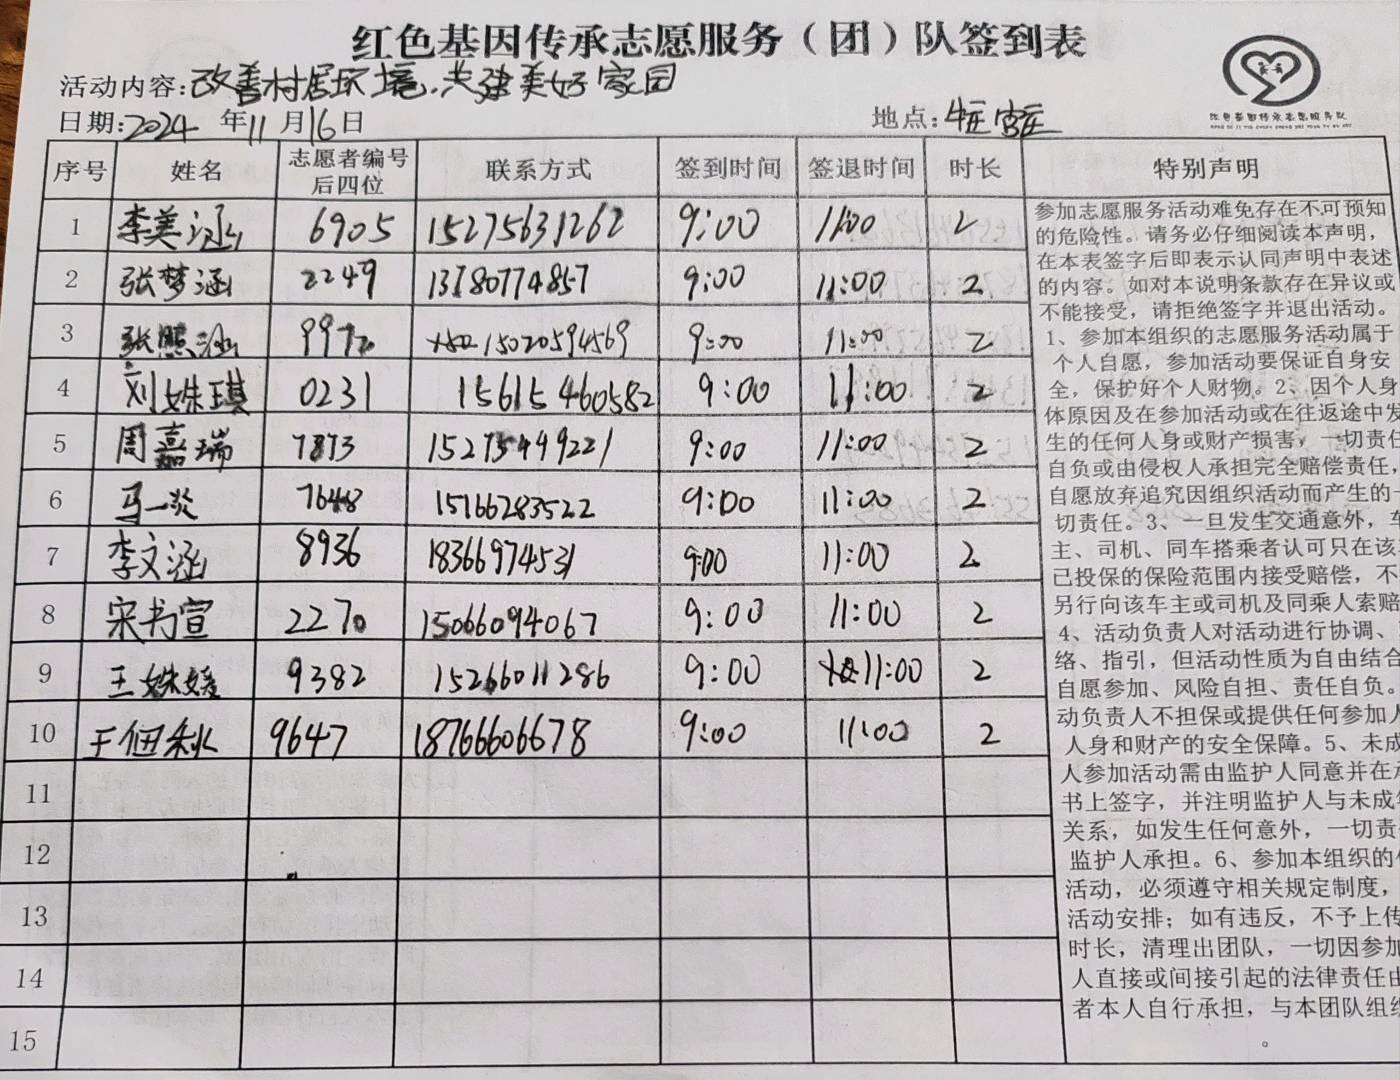 红色基因传承志愿服务（团）队签到表
活动内容:改善村居环境.共建美好家园
日期:2024 年11月16日 地点:
序号 姓名 志愿者编号后四位 联系方式 签到时间 签退时间 时长 特别声明
1 李美涵 6905 15275631262 9:00 11:00 2
2 张梦涵 2249 13780774857 9:00 11:00 2
3 张熙涵 9970 15020594569 9:00 11:00 2
4 刘姝琪 0231 15615460582 9:00 11:00 2
5 周嘉瑞 7873 15275449221 9:00 11:00 2
6 马一炎 7648 15166283522 9:00 11:00 2
7 李文涵 8936 18366974531 9:00 11:00 2
8 宋书宣 2270 15066094067 9:00 11:00 2
9 王姝媛 9382 15266011286 9:00 11:00 2
10 王佃秋 9647 18766606678 9:00 11:00 2
11
12
13
14
15
参加志愿服务活动难免存在不可预知
的危险性。请务必仔细阅读本声明，
在本表签字后即表示认同声明中表述
的内容。如对本说明条款存在异议或
不能接受，请拒绝签字并退出活动。
1、参加本组织的志愿服务活动属于
个人自愿，参加活动要保证自身安
全，保护好个人财物。2、因个人身
体原因及在参加活动或在往返途中发
生的任何人身或财产损害，一切责任
自负或由侵权人承担完全赔偿责任，
自愿放弃追究因组织活动而产生的一
切责任。3、一旦发生交通意外，车
主、司机、同车搭乘者认可只在该
已投保的保险范围内接受赔偿，不
另行向该车主或司机及同乘人索赔
4、活动负责人对活动进行协调、
络、指引，但活动性质为自由结合
自愿参加、风险自担、责任自负。
动负责人不担保或提供任何参加人
人身和财产的安全保障。5、未成
人参加活动需由监护人同意并在
书上签字，并注明监护人与未成
关系，如发生任何意外，一切责
监护人承担。6、参加本组织的
活动，必须遵守相关规定制度，
活动安排；如有违反，不予上传
时长，清理出团队，一切因参加
人直接或间接引起的法律责任由
者本人自行承担，与本团队组织
。